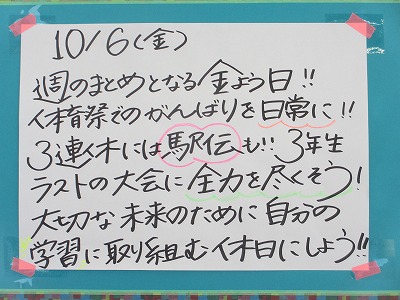 10/6(金)
週のまとめとなる金よう日!!
体育祭でのがんばりを日常に!!
3連休には駅伝も!! 3年生
ラストの大会に全力を尽くそう!
大切な未来のために自分の
学習に取り組む休日にしよう!!